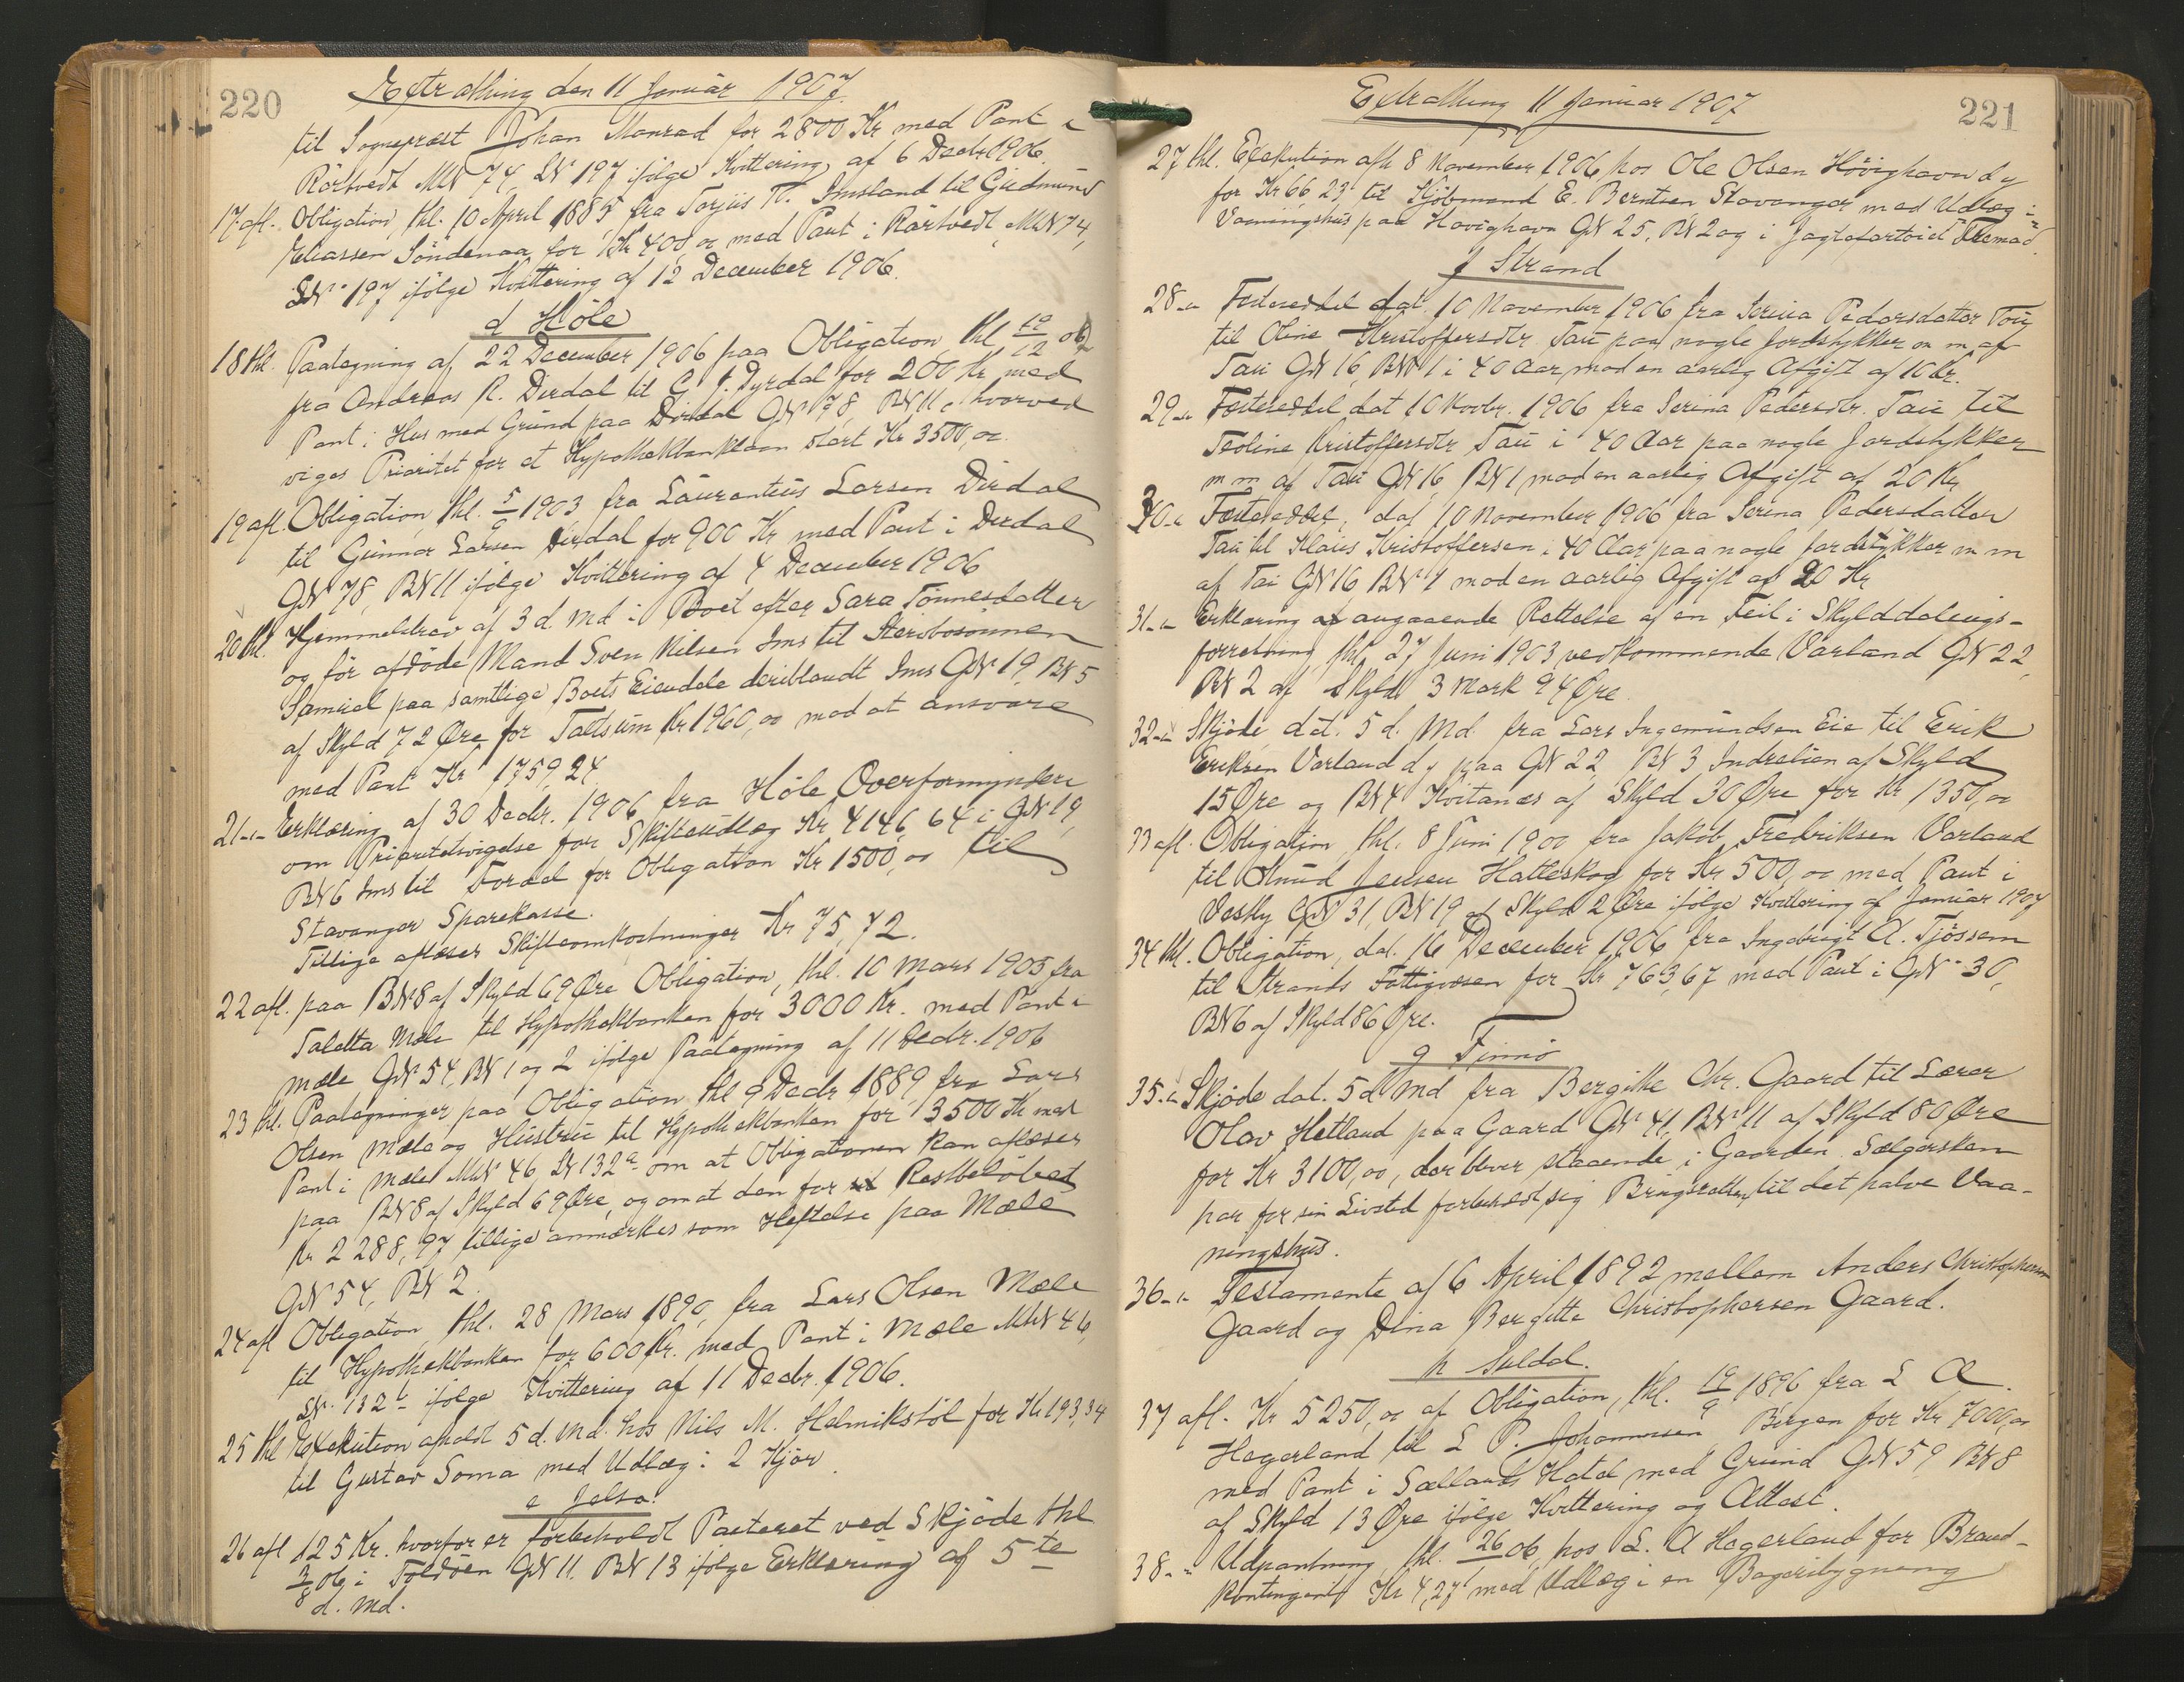 220
Extrathing den 11 Januar 1907.
til Sogneprest Johan Monrad for 2800 Kr med Pant i
Rörtvedt MN 74, LN 197 ifölge Kvittering af 6 Decbr 1906.
17 afl. Obligation, thl. 10 April 1885 fra Torjus T. Imsland til Gudmund
Eliassen Söndenaa for Kr 400,00 med Pant i Rörtvedt MN 74,
LN 197 ifölge Kvittering af 12 December 1906.
d Höle
18 thl. Paategning af 22 December 1906 paa Obligation, thl 19/12 06
fra Andreas R. Dirdal til G J. Dyrdal for 200 Kr med
Pant i Hus med Grund paa Dirdal GN 78 BN 11, hvorved
viges Prioritet for et Hypothekbanklaan stort Kr 3500,00.
19 afl. Obligation, thl. 5/9 1903 fra Laurantius Larsen Dirdal
til Gunnar Larsen Dirdal for 900 Kr med Pant i Dirdal
GN 78, BN 11 ifölge Kvittering af 4 December 1906
20 thl. Hjemmelsbrev af 3 d. Md i Boet efter Sara Tönnesdatter
og för afdöde Mand Sven Nilsen Ims til Stervbosönnen
Samuel paa samtlige Boets Eiendele deriblandt Ims GN 19, BN 5
af Skyld 72 Öre for Taltsum Kr 1960,00 mod at ansvare
med Pant Kr 1759,24
21 -"- Erklæring af 30 Decbr. 1906 fra Höle Overformynderi
om Prioritetsvigelse for Skifteudlæg Kr 4146,64 i GN 19,
BN 6 Ims til Fordel for Obligation Kr 1500,00 til
Stavanger Sparekasse.
Tillige aflöser Skifteomkostninger Kr 75,72.
22 afl. paa BN 8 af Skyld 69 Öre Obligation, thl. 10 Mars 1905 fra
Taletta Mæle til Hypothekbanken for 3000 Kr. med Pant i
Mæle GN 54, BN 1 og 2 ifölge Paategning af 11 Decbr. 1906
23 thl. Paategninger paa Obligation thl 9 Decbr 1889 fra Lars
Olsen Mæle og Hustru til Hypothekbanken for 3500 Kr med
Pant i Mæle MN 46, LN 132a om at Obligationen kan aflöses
paa BN 8 af Skyld 69 Öre, og om at den for Restbelöbet
Kr 2288,97 tillige anmerkes som Heftelse paa Mæle
GN 54, BN 2.
24 afl Obligation, thl. 28 Mars 1890, fra Lars Olsen Mæle
til Hypothekbanken for 600 Kr. med Pant i Mæle MN 46,
LN 132b ifölge Kvittering af 11 Decbr. 1906.
25 thl Exekution afholdt 5 d. Md. hos Nils M. Helmikstöl for Kr 193,34
til Gustav Soma med Udlæg i 2 Kjör
e Jelsa.
26 afl 125 Kr. hvorfor er forbeholdt Panteret ved Skjöde thl
3/8 06 i Foldöen GN 11. BN 13 ifölge Erklæring af 5te
d. Md.
221
Extrathing 11 Januar 1907
27 thl. Exekution afh 8 November 1906 hos Ole Olsen Hövighavn d y
for Kr 66,23 til Kjöbmand E. Berntsen Stavanger med Udlæg i
Vaaningshus paa Hövighavn GN 25, BN 2 og i Jagtefartöiet Fremad.
f Strand
28 -"- Festeseddel dat. 10 November 1906 fra Serina Pedersdatter Tau
til Oline Kristoffersdtr Tau paa nogle Jordstykker m m af
Tau GN 16, BN 1 i 40 Aar mod en aarlig Afgift af 10 Kr.
29 -"- Festeseddel dat 10 Novbr. 1906 fra Serina Pedersdtr. Tau til
Teoline Kristoffersdtr Tau i 40 Aar paa nogle Jordstykker
m m af Tau GN 16, BN 1 mod en aarlig Afgift af 20 Kr
30 -"- Festeseddel, dat 10 November 1906 fra Serina Pedersdatter
Tau til Klaus Kristoffersen i 40 Aar paa nogle Jordstykker m m
af Tau GN 16 BN 1 mod en aarlig Afgift af 20 Kr
31 -"- Erklæring angaaende Rettelse af en Feil i Skylddelings-
forretning thl 27 Juni 1903 vedkommende Varland GN 22,
BN 2 af Skyld 3 Mark 94 Öre.
32 -"- Skjöde, dat. 5 d. Md. fra Lars Ingemundsen Eie til Erik
Eriksen Varland d y paa GN 22, BN 3 af Skyld
15 Öre og BN 4 Kvitanes af Skyld 30 Öre for Kr 1350,00
33 afl. Obligation, thl. 8 Juni 1900 fra Jakob Fredriksen Varland
til Knud Jensen Hatleskog for Kr 500,00 med Pant i
GN 31, BN 19 af Skyld 2 Öre ifölge Kvittering af Januar 1907
34 thl. Obligation, dat. 16 December 1906 fra Ingebrigt A. Tjössem
til Strands Fattigvæsen for Kr 763,67 med Pant i GN 30,
BN 6 af Skyld 86 Öre.
g Finnö
35 -"- Skjöde dat. 5 d Md fra Bergitte Chr. Gaard til Lærer
Olav Hetland paa Gaard GN 41, BN 11 af Skyld 80 Öre
for Kr 3100,00, der bliver staaende i Gaarden. Sælgersken
har for sin Livstid forbeholdt sig Brugsretten til det halve Vaa-
ningshus.
36 -"- Testamente af 6 April 1892 mellem Anders Christophersen
Gaard og Dina Bergitte Christophersen Gaard.
h Suldal.
37 afl. Kr 5250,00 af Obligation, thl. 19/9 1896 fra L A
Hegerland til L P. Johannessen Bergen for Kr 7000,00
med Pant i Sællands Hotel med Grund GN 59 BN 8
af Skyld 13 Öre ifölge Kvittering og Attest.
38 -"- Udpantning thl. 06, hos L. A Hegerland for Brand-
kontingent Kr 4,27 med Udlæg i en Bageribygning